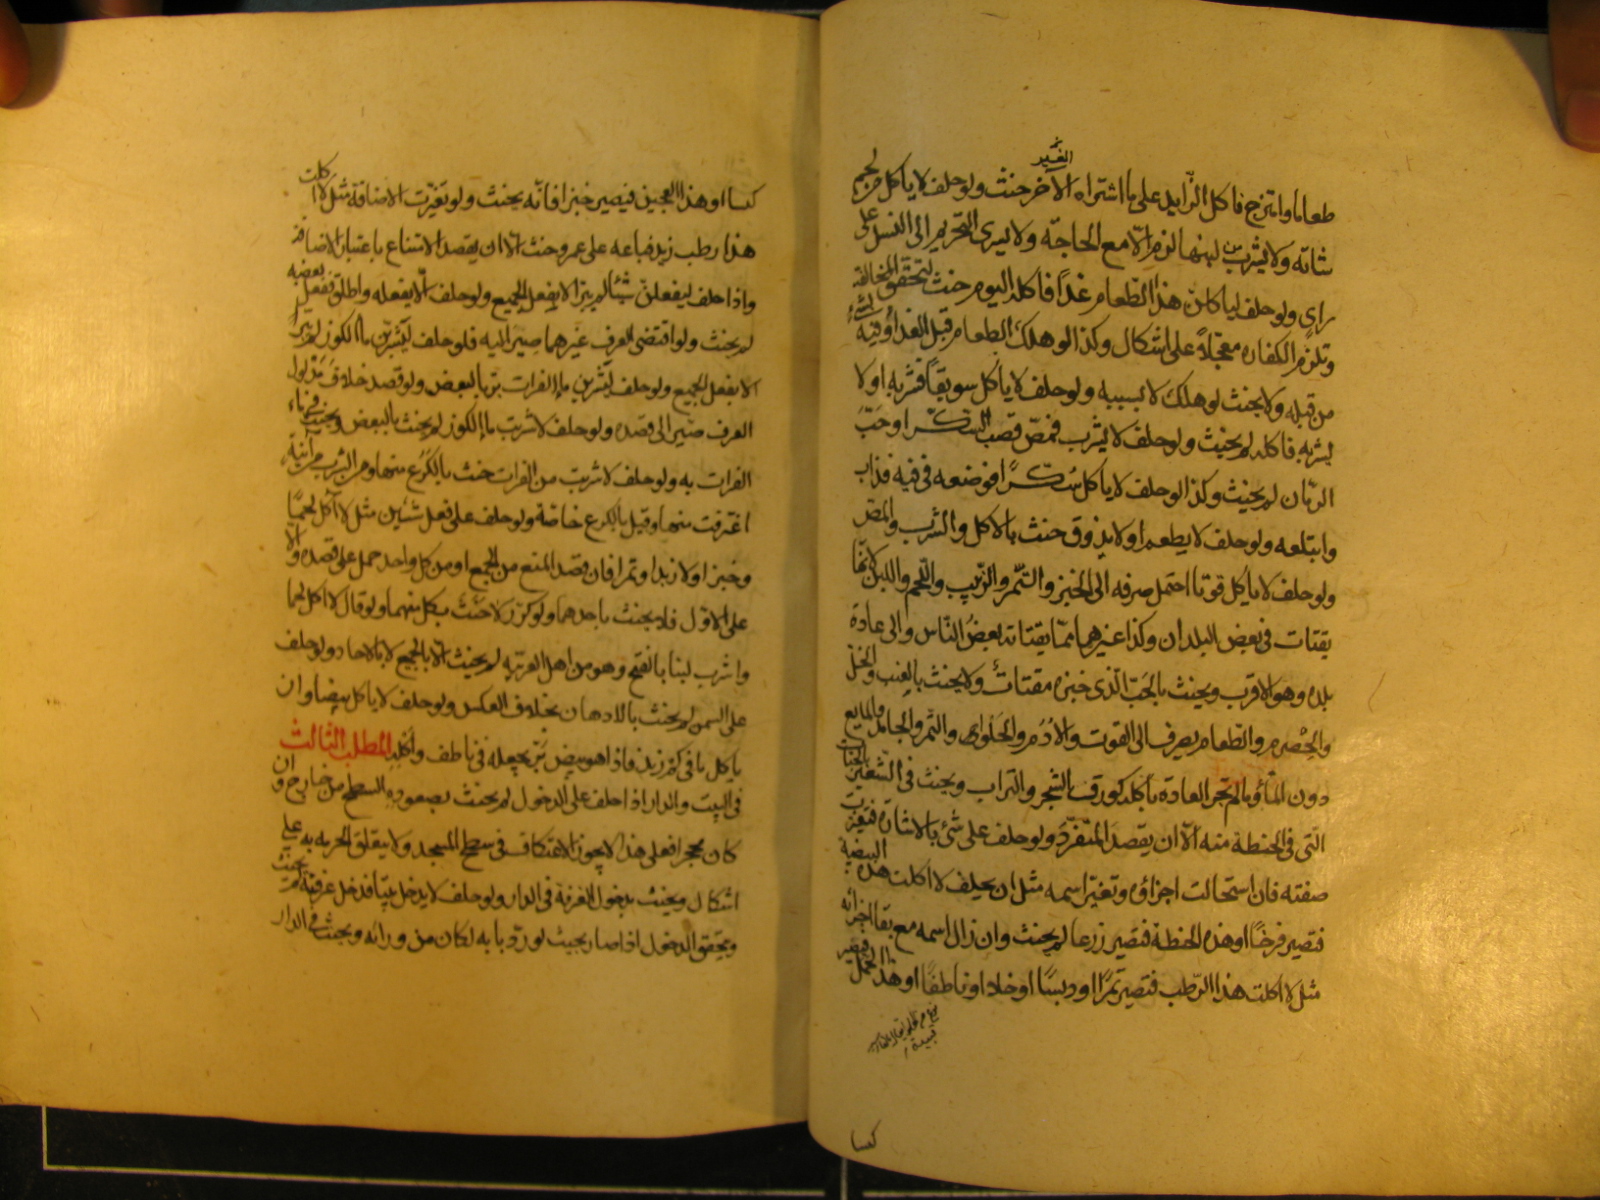 الغير
طعاما وامتزج فاكل الزايد على ما اشتراه الآخر حنث ولو حلف لا ياكل من لحم
شاته ولا يشرب من لبنها لزم الا مع الحاجة ولا يسرى التحريم الى النسل على
راى ولو حلف لياكلن هذا الطعام غداً فاكله اليوم حنث لتحقق المخالفة
وتلزم الكفارة معجلاً على اشكال وكذا لو هلك الطعام قبل الغد او فيه بشئ
من قبله ولا يحنث لو هلك لا بسببه ولو حلف لا ياكل سويقاً فشربه او لا
يشربه فاكله لم يحنث ولو حلف لا يشرب فمصّ قصب السكر او حبّ
الرمان لم يحنث وكذا لو حلف لا ياكل سُكّراً فوضعه فى فيه فذاب
وابتلعه ولو حلف لا يطعم او لا يذوق حنث بالاكل والشرب والمص
ولو حلف لا ياكل قوتا احتمل صرفه الى الخبز والتّمر والزّبيب واللّحم واللبن لانّها
يقتات فى بعض البلدان وكذا غيرهما ممّا يقتاته بعض النّاس والى عادة
بلده وهو الاقرب ويحنث بالحَبّ الّذى خبزه مقتات ولا يحنث بالعِنب والخلّ
والحُصْرم والطّعام يصرف الى القوت والاُدُم والحَلْوى والتّمر والجامد والمايع
دون الماء وما لم تجر العادة باكله كورق الشجر والتراب ويحنث فى الشّعير بالحبّات
الّتى فى الحنطة منه الّا ان يقصد المنفرد ولو حلف على شئ بالاشارة فتغيّرت
صفته فان استحالت اجزاؤه وتغيّر اسمه مثل ان يحلف لا اكلت هذه البيضة
فتصير فرخاً او هذه الحنطة فتصير زرعا لم يحنث وان زال اسمه مع بقاء اجزائه
مثل لا اكلت هذا الرّطب فتصير تمرًا او دبسًا او خلا او ناطفًا او هذا الحمل فيصير
كبسا
كبسا او هذا العجين فيصير خبزا فانّه يحنث ولو تغيّرت الاضافة مثل لا اكلت
هذا رطب زيد فباعه على عمرو حنث الّا ان يقصد الامتناع باعتبار الاضافة
واذا حلف ليفعلنّ شيئًا لم يبرّ الا بفعل الجميع ولو حلف الّا يفعله واطلق ففعل بعضه
لم يحنث ولو اقتضى العرف غيرهما صير اليه فلو حلف ليَشربنّ ماء الكوز لم يبرّ
الا بفعل الجميع ولو حلف ليَشربنّ ماء الفرات برّ بالبعض ولو قصد خلاف مدلول
العرف صير الى قصده ولو حلف لا شربت ماء الكوز لم يحنث بالبعض ويحنث فى ماء
الفرات به ولو حلف لا شربت من الفرات حنث بالكَرْع منها ومن الشرب من آنية
اغترفت منها وقيل بالكرع خاصّة ولو حلف على فعل شئين مثل لا آكل لحمًا
وخبزا ولا زبدا وتمرا فان قصد المنع من الجمع او من كل واحد حمل على قصده والّا
على الاوّل فلا يحنث باحدهما ولو كرّر لا حنث بكل منهما ولو قال لا آكل لحما
واشرب لبنا بالفتح وهو من اهل العربيّه لم يحنث الّا بالجمع لا بالاحاد ولو حلف
على السمن لم يحنث بالادهان بخلاف العكس ولو حلف لا ياكل بيضا وان
ياكل ما فى كمّ زيد فاذا هو بيض برّ بجعله فى ناطف واكله المطلب الثالث
فى البيت والدار اذا حلف على الدخول لم يحنث بصعوده السطح من خارج وان
كان محجرا فعلى هذا لا يجوز الاعتكاف فى سطح المسجد ولا يتعلق الحرمة به على
اشكال ويحنث بدخول الغرفة فى الدار ولو حلف لا يدخل بيتا فدخل غرفته لم يحنث
ويتحقق الدخول اذا صار بحيث لو ردّ بابه لكان من ورائه ويحنث فى الدار